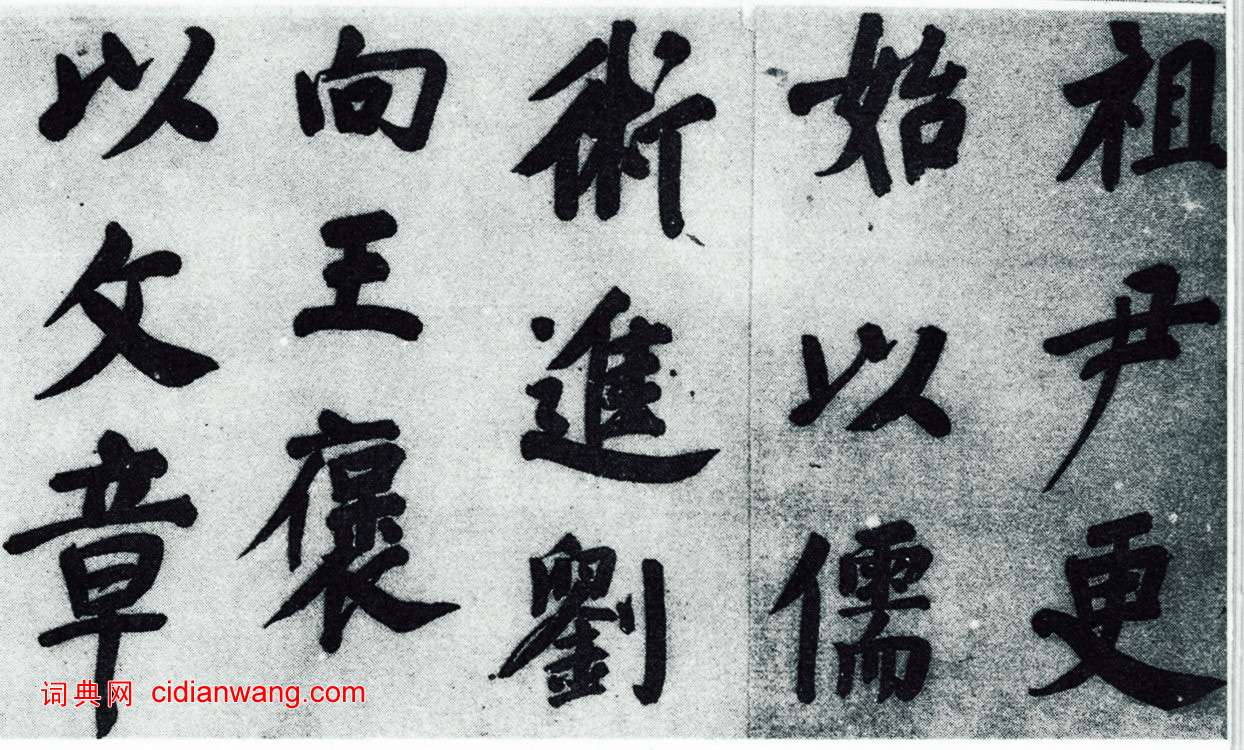 祖尹更
始以儒
術進劉
向王褒
以文章
词典网 cidianwang.com